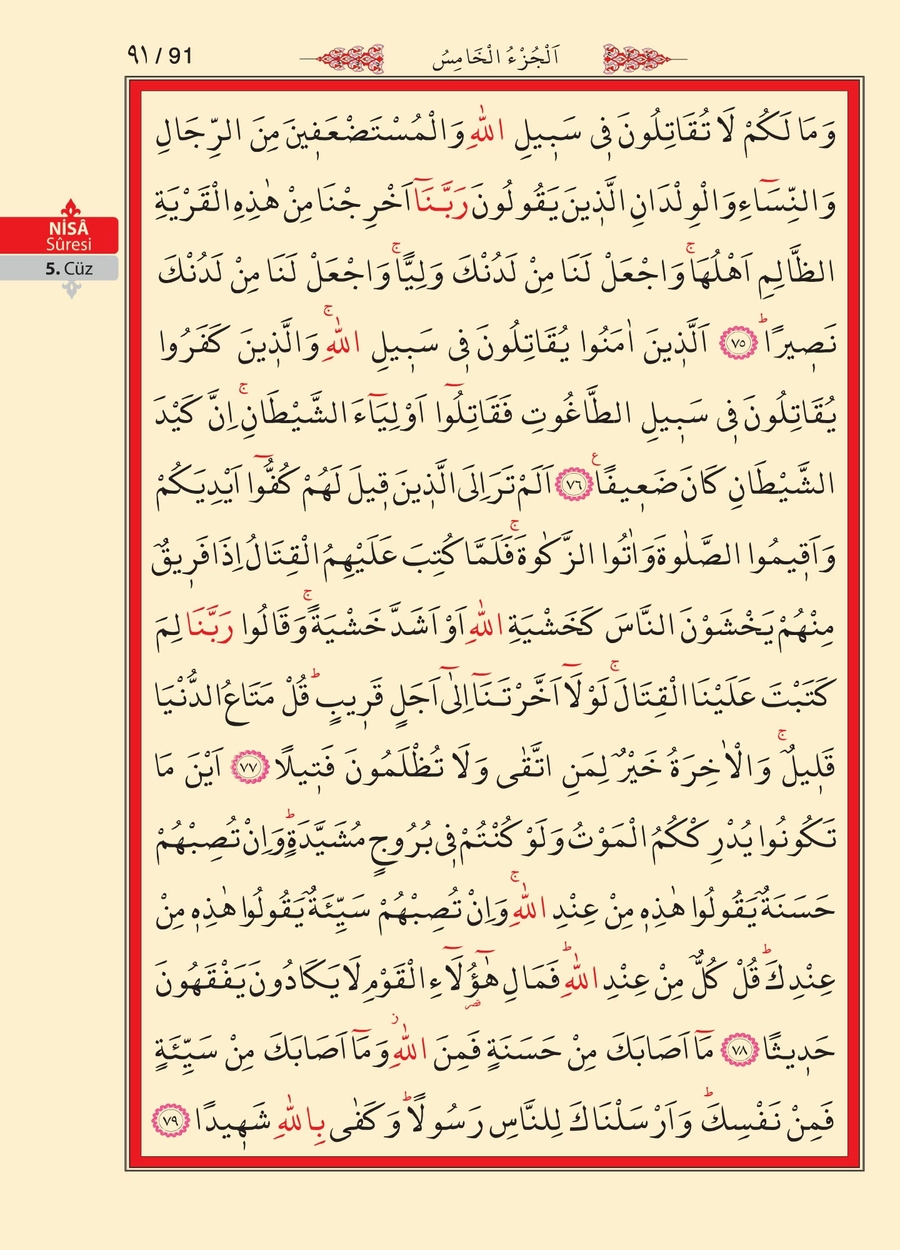 ٩١ / 91
اَلْجُزْءُ الْخَامِسُ
NİSÂ
Sûresi
5. Cüz
وَمَا لَكُمْ لَا تُقَاتِلُونَ فٖى سَبٖيلِ اللّٰهِ وَالْمُسْتَضْعَفٖينَ مِنَ الرِّجَالِ
وَالنِّسَٓاءِ وَالْوِلْدَانِ الَّذٖينَ يَقُولُونَ رَبَّنَٓا اَخْرِجْنَا مِنْ هٰذِهِ الْقَرْيَةِ
الظَّالِمِ اَهْلُهَاۚ وَاجْعَلْ لَنَا مِنْ لَدُنْكَ وَلِيًّاۚ وَاجْعَلْ لَنَا مِنْ لَدُنْكَ
نَصٖيرًاؕ ﴿٧٥﴾ اَلَّذٖينَ اٰمَنُوا يُقَاتِلُونَ فٖى سَبٖيلِ اللّٰهِۚ وَالَّذٖينَ كَفَرُوا
يُقَاتِلُونَ فٖى سَبٖيلِ الطَّاغُوتِ فَقَاتِلُٓوا اَوْلِيَٓاءَ الشَّيْطَانِۚ اِنَّ كَيْدَ
الشَّيْطَانِ كَانَ ضَعٖيفًاࣖ ﴿٧٦﴾ اَلَمْ تَرَ اِلَى الَّذٖينَ قٖيلَ لَهُمْ كُفُّٓوا اَيْدِيَكُمْ
وَاَقٖيمُوا الصَّلٰوةَ وَاٰتُوا الزَّكٰوةَۚ فَلَمَّا كُتِبَ عَلَيْهِمُ الْقِتَالُ اِذَا فَرٖيقٌ
مِنْهُمْ يَخْشَوْنَ النَّاسَ كَخَشْيَةِ اللّٰهِ اَوْ اَشَدَّ خَشْيَةًۚ وَقَالُوا رَبَّنَا لِمَ
كَتَبْتَ عَلَيْنَا الْقِتَالَۚ لَوْلَٓا اَخَّرْتَنَٓا اِلٰٓى اَجَلٍ قَرٖيبٍؕ قُلْ مَتَاعُ الدُّنْيَا
قَلٖيلٌۚ وَالْاٰخِرَةُ خَيْرٌ لِمَنِ اتَّقٰى وَلَا تُظْلَمُونَ فَتٖيلًا ﴿٧٧﴾ اَيْنَ مَا
تَكُونُوا يُدْرِكْكُمُ الْمَوْتُ وَلَوْ كُنْتُمْ فٖى بُرُوجٍ مُشَيَّدَةٍؕ وَاِنْ تُصِبْهُمْ
حَسَنَةٌ يَقُولُوا هٰذِهٖ مِنْ عِنْدِ اللّٰهِۚ وَاِنْ تُصِبْهُمْ سَيِّئَةٌ يَقُولُوا هٰذِهٖ مِنْ
عِنْدِكَؕ قُلْ كُلٌّ مِنْ عِنْدِ اللّٰهِؕ فَمَالِ هٰٓؤُ۬لَٓاءِ الْقَوْمِ لَا يَكَادُونَ يَفْقَهُونَ
حَدٖيثًا ﴿٧٨﴾ مَٓا اَصَابَكَ مِنْ حَسَنَةٍ فَمِنَ اللّٰهِؗ وَمَٓا اَصَابَكَ مِنْ سَيِّئَةٍ
فَمِنْ نَفْسِكَؕ وَاَرْسَلْنَاكَ لِلنَّاسِ رَسُولًاؕ وَكَفٰى بِاللّٰهِ شَهٖيدًا ﴿٧٩﴾